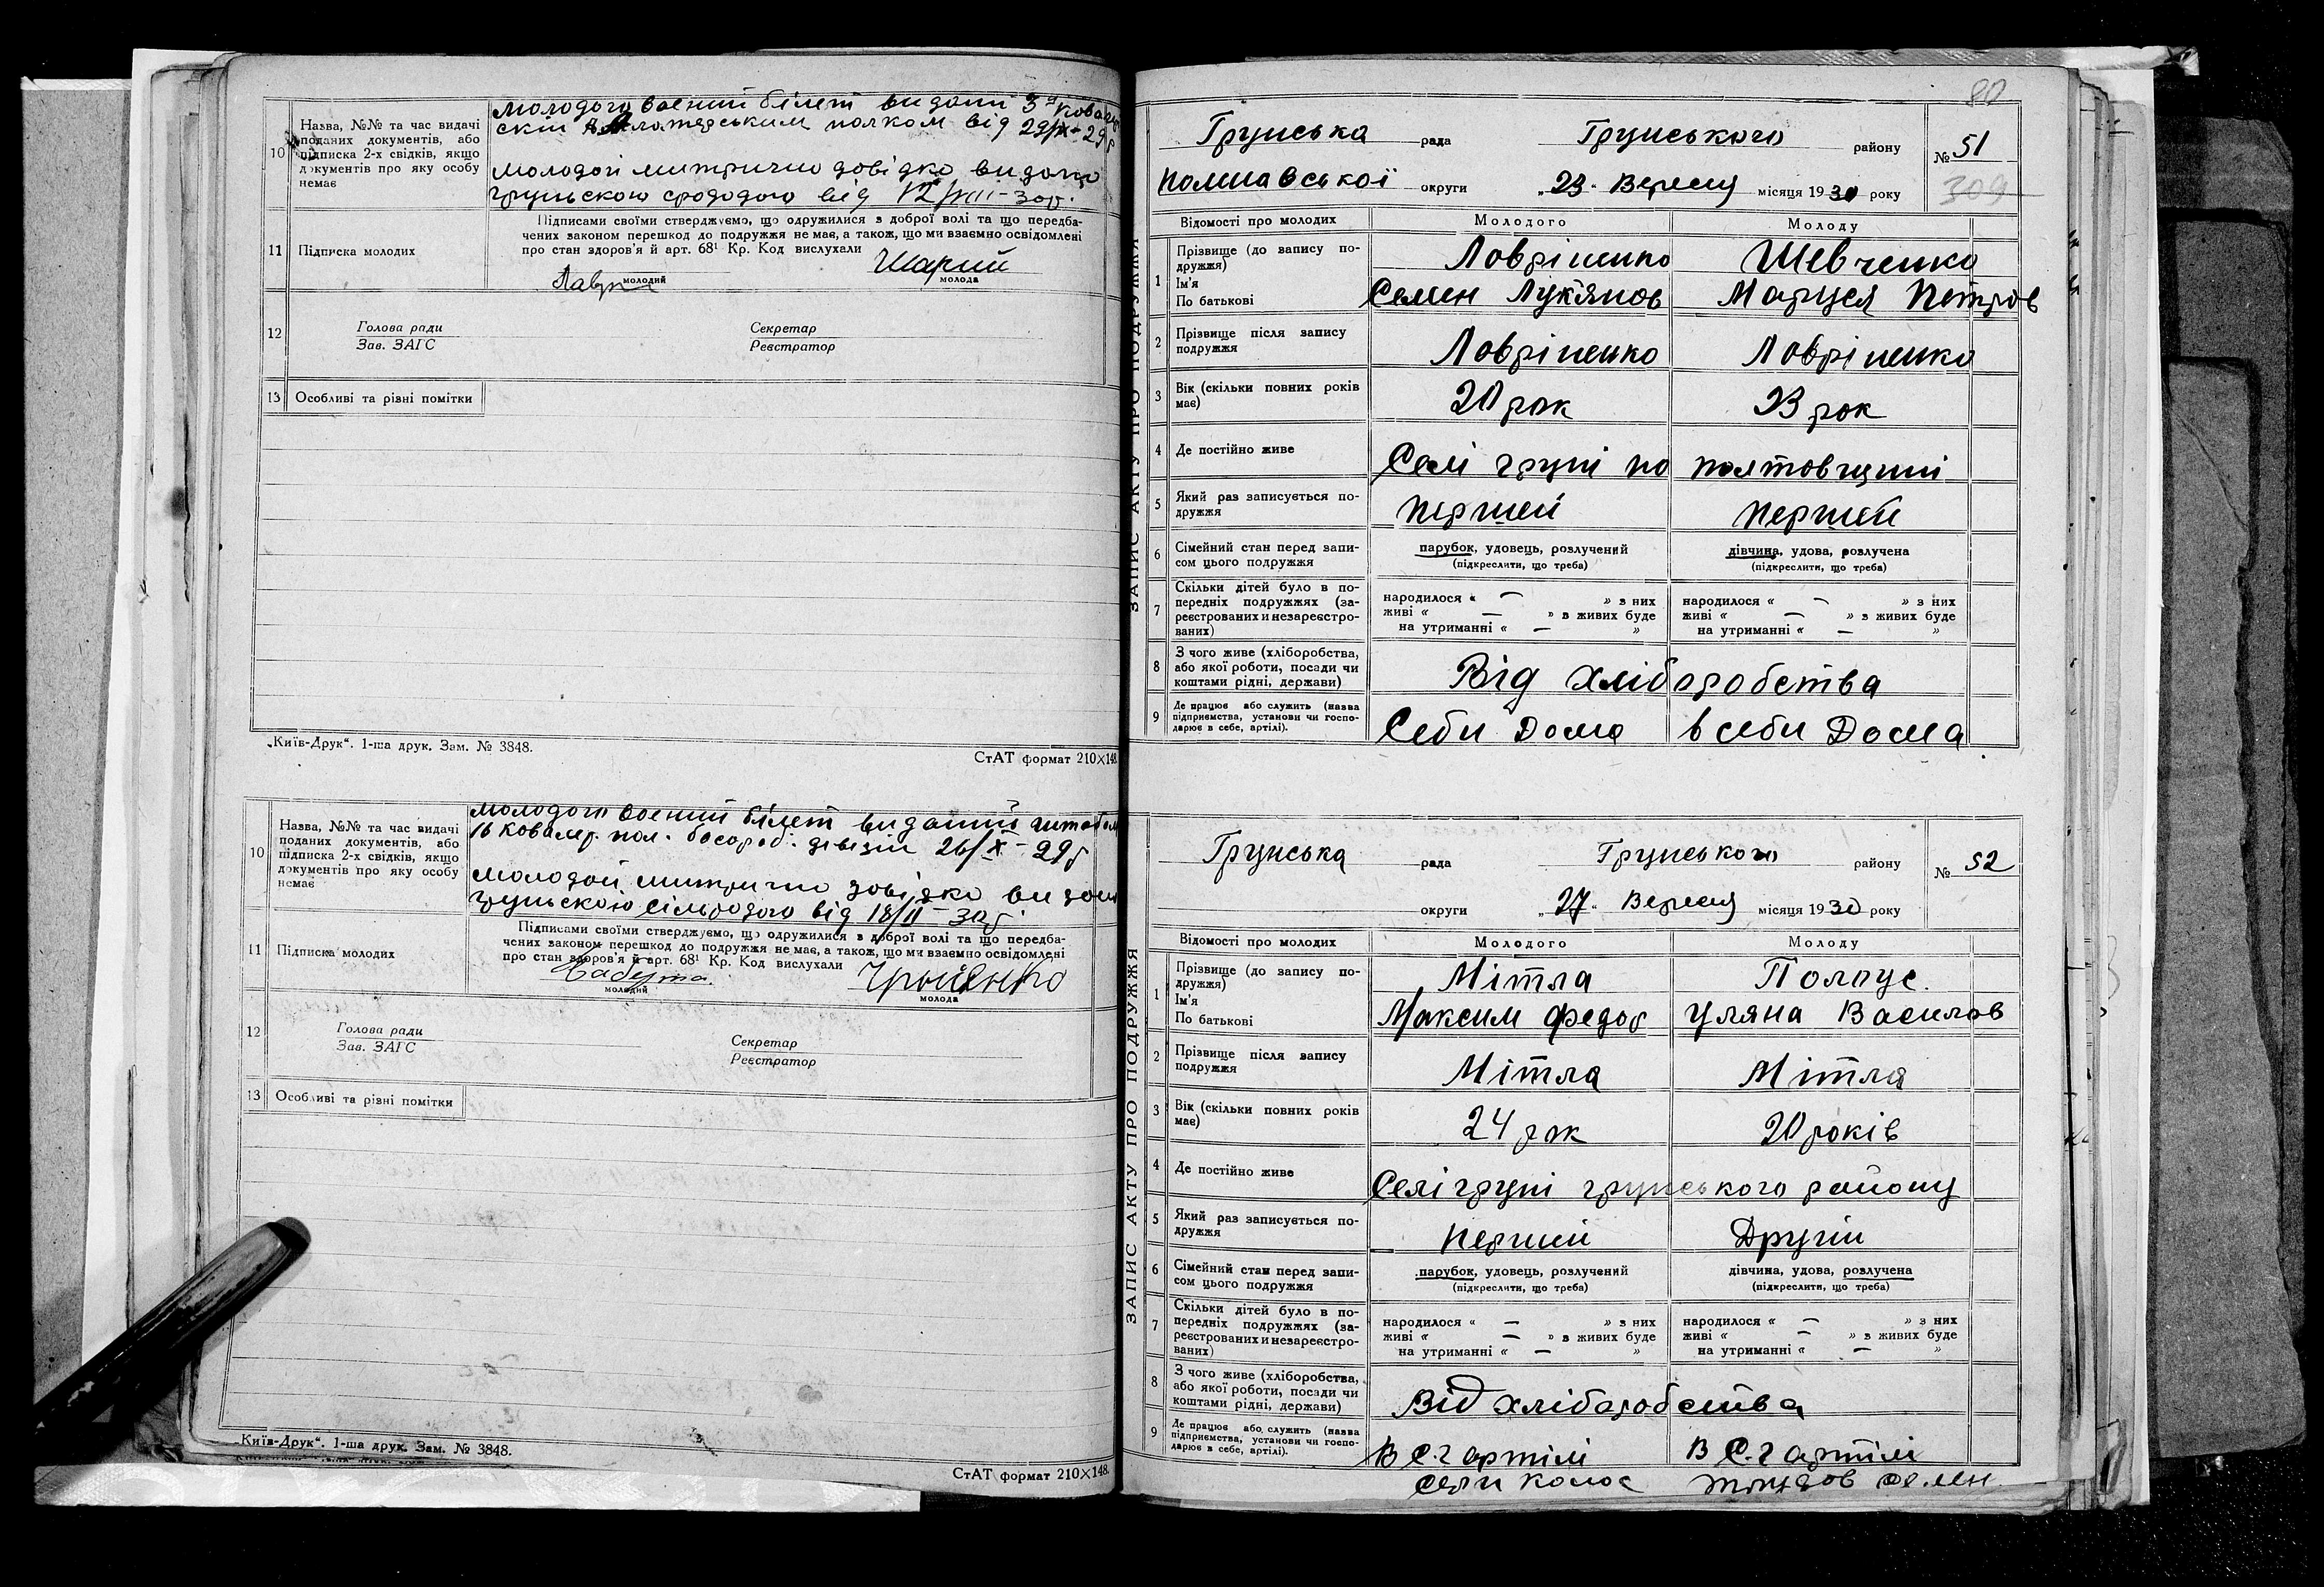 10 Назва, №№ та час видачі поданих документів, або підписка 2-х свідків, якщо документів про яку особу немає
молодого воений білет видани 3й
полком від 29/
молодої митрична довідка видана
грунською від 12/VIII-30р.
11 Підписка молодих
Підписами своїми стверджуємо, що одружилися з доброї волі та що передба-
чених законом перешкод до подружжя немає, а також, що ми взаємно освідомлені
про стан здоров'я й арт. 68¹ Кр. Код вислухали
Шарий
молодий молода
12 Голова ради Секретар
Зав. ЗАГС Реєстратор
13 Особливі та різні помітки
„Київ-Друк“. 1-ша друк. Зам. № 3848.
СтАТ формат 210×148.
10 Назва, №№ та час видачі поданих документів, або підписка 2-х свідків, якщо документів про яку особу немає
молодого военний білет виданий штабом
16 ковалер. пол. дівізіи 26/X-29р
молодой митрична довідка
грунською сільрадою від 18/II-30р.
11 Підписка молодих
Підписами своїми стверджуємо, що одружилися з доброї волі та що передба-
чених законом перешкод до подружжя немає, а також, що ми взаємно освідомлені
про стан здоров'я й арт. 68¹ Кр. Код вислухали
молодий молода
12 Голова ради Секретар
Зав. ЗАГС Реєстратор
13 Особливі та різні помітки
„Київ-Друк“. 1-ша друк. Зам. № 3848.
СтАТ формат 210×148.
80
ЗАПИС АКТУ ПРО ПОДРУЖЖЯ
Грунська рада Грунського району № 51
округи „23“ Вересня місяця 1930 року 309
Відомості про молодих Молодого Молоду
1 Прізвище (до запису подружжя) Ловріненко Шевченко
Ім'я По батькові Семен Лукянов Маруся Петров
2 Прізвище після запису подружжя Ловріненко Ловріненко
3 Вік (скільки повних років має) 20 рок 23 рок
4 Де постійно живе Селі груні на полтовщині
5 Який раз записується подружжя першей першей
6 Сімейний стан перед записом цього подружжя парубок, удовець, розлучений дівчина, удова, розлучена
(підкреслити, що треба) (підкреслити, що треба)
7 Скільки дітей було в попередніх подружжях (зареєстрованих и незареєстрованих)
народилося « — » з них народилося « — » з них
живі « — » в живих буде живі « — » в живих буде
на утриманні « — » на утриманні « — »
8 З чого живе (хліборобства, або якої роботи, посади чи коштами рідні, держави) Від хліборобства
9 Де працює або служить (назва підприємства, установи чи господарює в себе, артілі). Себи Дома в себи Дома
ЗАПИС АКТУ ПРО ПОДРУЖЖЯ
Грунська рада Грунського району № 52
округи „27“ Вересня місяця 1930 року
Відомості про молодих Молодого Молоду
1 Прізвище (до запису подружжя) Мітла
Ім'я По батькові Максим Федор Уляна Василов
2 Прізвище після запису подружжя Мітла Мітла
3 Вік (скільки повних років має) 24 рок 20 років
4 Де постійно живе Селі груні грунського району
5 Який раз записується подружжя першій Другій
6 Сімейний стан перед записом цього подружжя парубок, удовець, розлучений дівчина, удова, розлучена
(підкреслити, що треба) (підкреслити, що треба)
7 Скільки дітей було в попередніх подружжях (зареєстрованих и незареєстрованих)
народилося « — » з них народилося « — » з них
живі « — » в живих буде живі « — » в живих буде
на утриманні « — » на утриманні « — »
8 З чого живе (хліборобства, або якої роботи, посади чи коштами рідні, держави) Від хліборобства
9 Де працює або служить (назва підприємства, установи чи господарює в себе, артілі). В С.г артілі В С.г артілі
колос